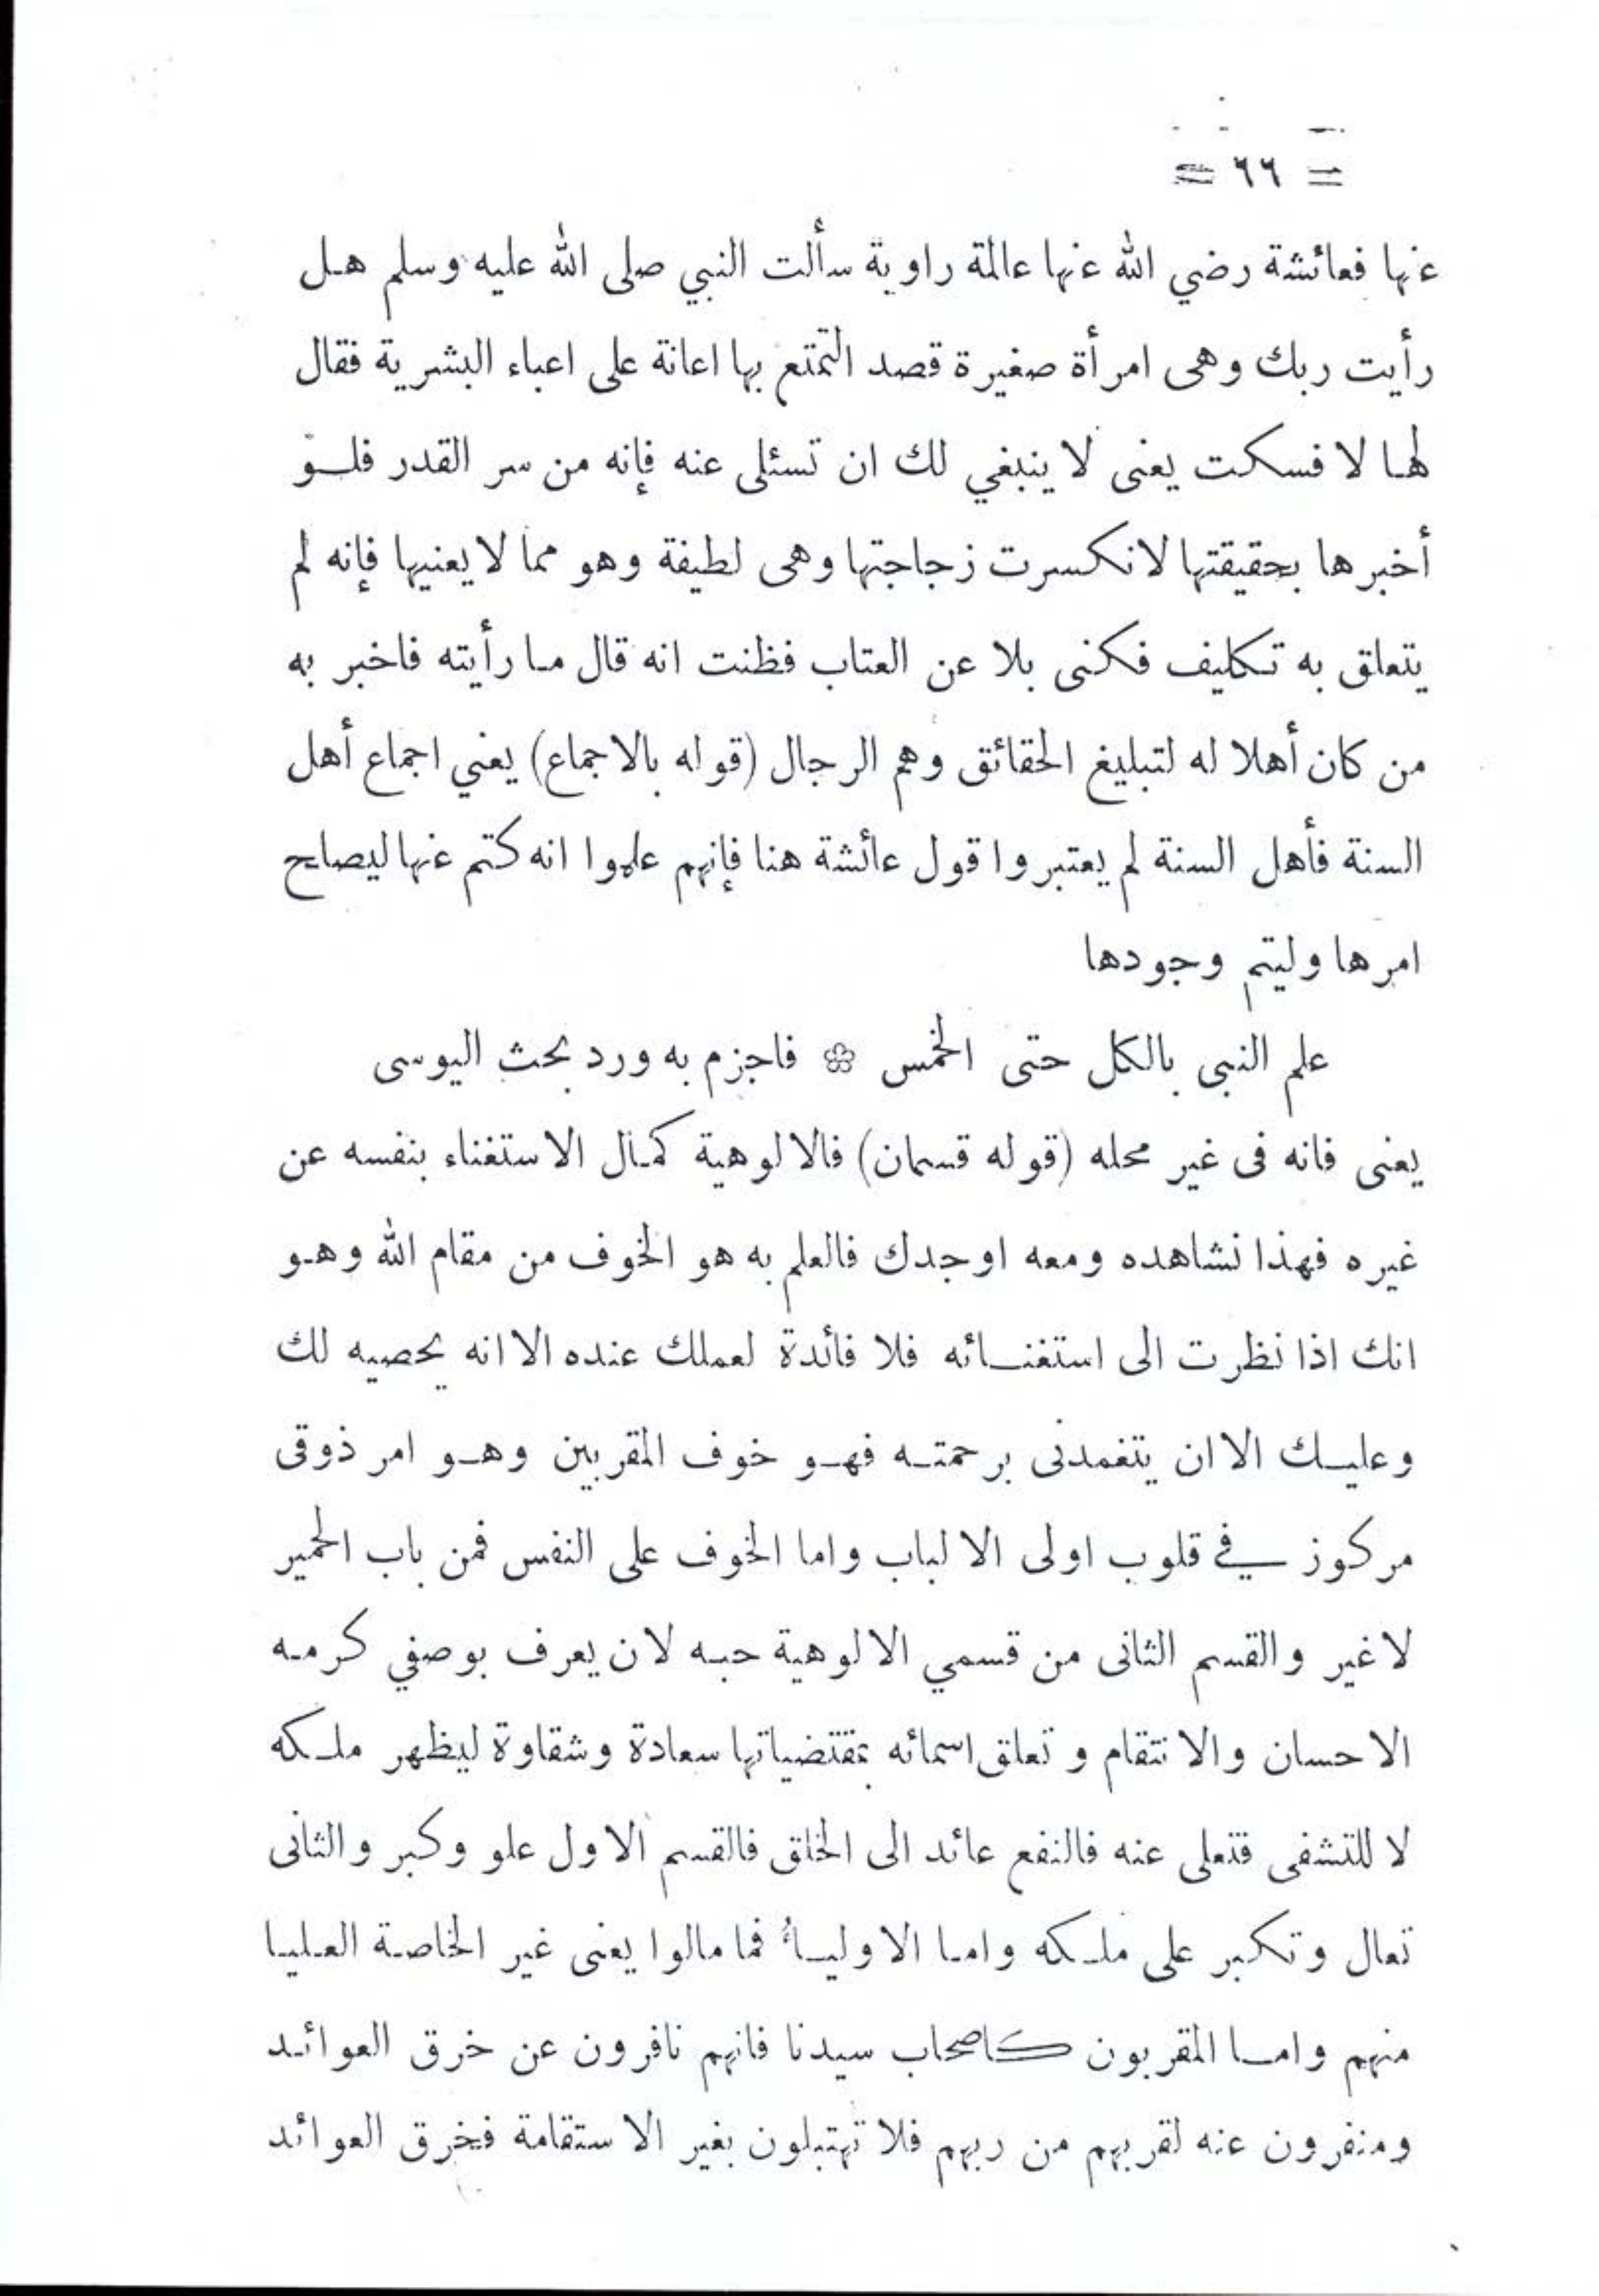 = ٦٦ =
عنها فعائشة رضي الله عنها عالمة راوية سألت النبي صلى الله عليه وسلم هل
رأيت ربك وهى امرأة صغيرة قصد التمتع بها اعانة على اعباء البشرية فقال
لها لا فسكت يعنى لا ينبغي لك ان تسئلى عنه فإنه من سر القدر فلو
أخبرها بحقيقتها لانكسرت زجاجتها وهى لطيفة وهو مما لا يعنيها فإنه لم
يتعلق به تكليف فكنى بلا عن العتاب فظنت انه قال ما رأيته فاخبر به
من كان أهلا له لتبليغ الحقائق وهم الرجال (قوله بالاجماع) يعني اجماع أهل
السنة فأهل السنة لم يعتبروا قول عائشة هنا فإنهم علموا انه كتم عنها ليصلح
امرها وليتم وجودها
علم النبى بالكل حتى الخمس ❀ فاجزم به ورد بحث اليوسى
يعنى فانه فى غير محله (قوله قسمان) فالالوهية كمال الاستغناء بنفسه عن
غيره فهذا نشاهده ومعه اوجدك فالعلم به هو الخوف من مقام الله وهو
انك اذا نظرت الى استغنائه فلا فائدة لعملك عنده الا انه يحصيه لك
وعليك الا ان يتغمدنى برحمته فهو خوف المقربين وهو امر ذوقى
مركوز في قلوب اولى الالباب واما الخوف على النفس فمن باب الحمير
لا غير والقسم الثانى من قسمي الالوهية حبه لان يعرف بوصفي كرمه
الاحسان والانتقام وتعلق اسمائه بمقتضياتها سعادة وشقاوة ليظهر ملكه
لا للتشفى فتعلى عنه فالنفع عائد الى الخلق فالقسم الاول علو وكبر والثانى
تعال وتكبر على ملكه واما الاولياء فما مالوا يعنى غير الخاصة العليا
منهم واما المقربون كاصحاب سيدنا فانهم نافرون عن خرق العوائد
ومنفرون عنه لقربهم من ربهم فلا تهتبلون بغير الاستقامة فخرق العوائد